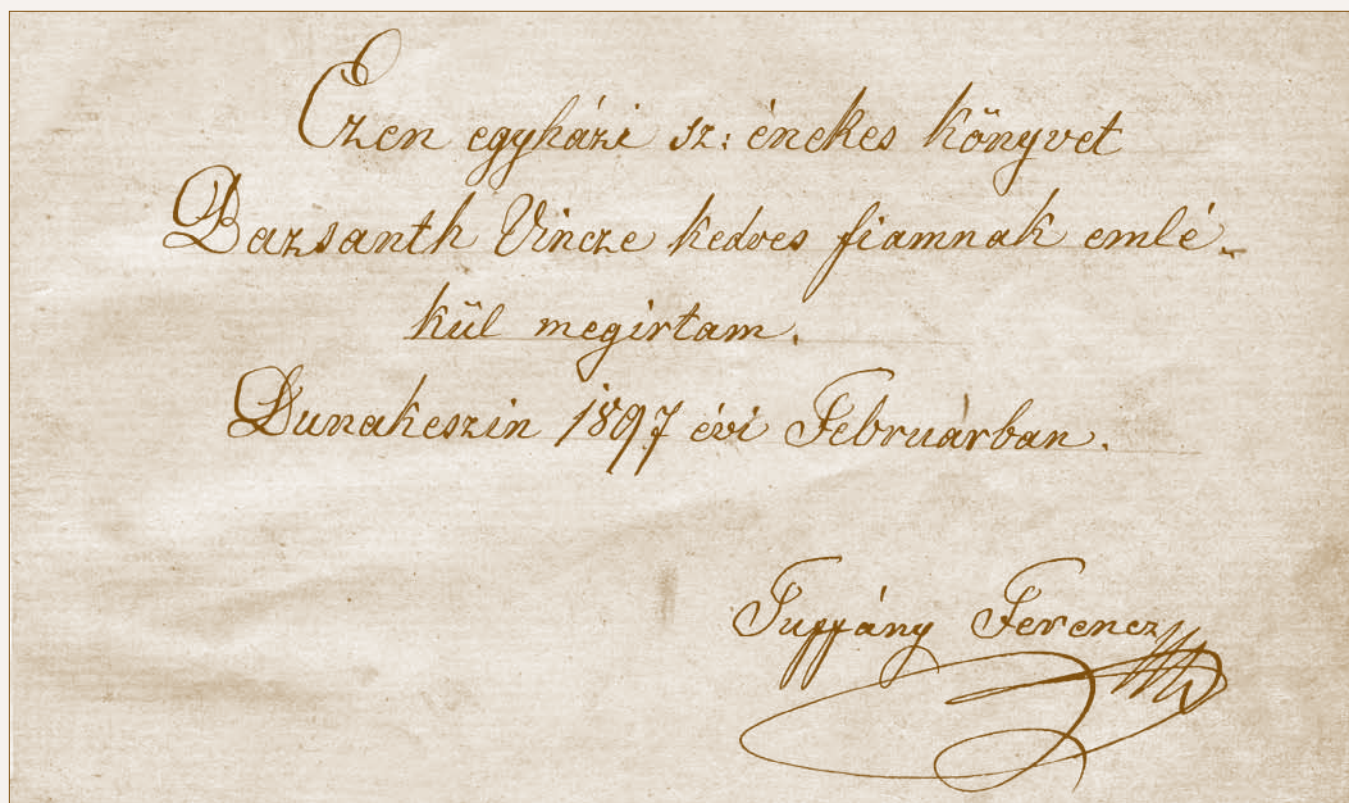 Ezen egyházi sz: énekes könyvet
Bazsanth Vincze kedves fiamnak emlé-
kül megirtam.
Dunakeszin 1897 évi Februárban.
Tuffány Ferencz